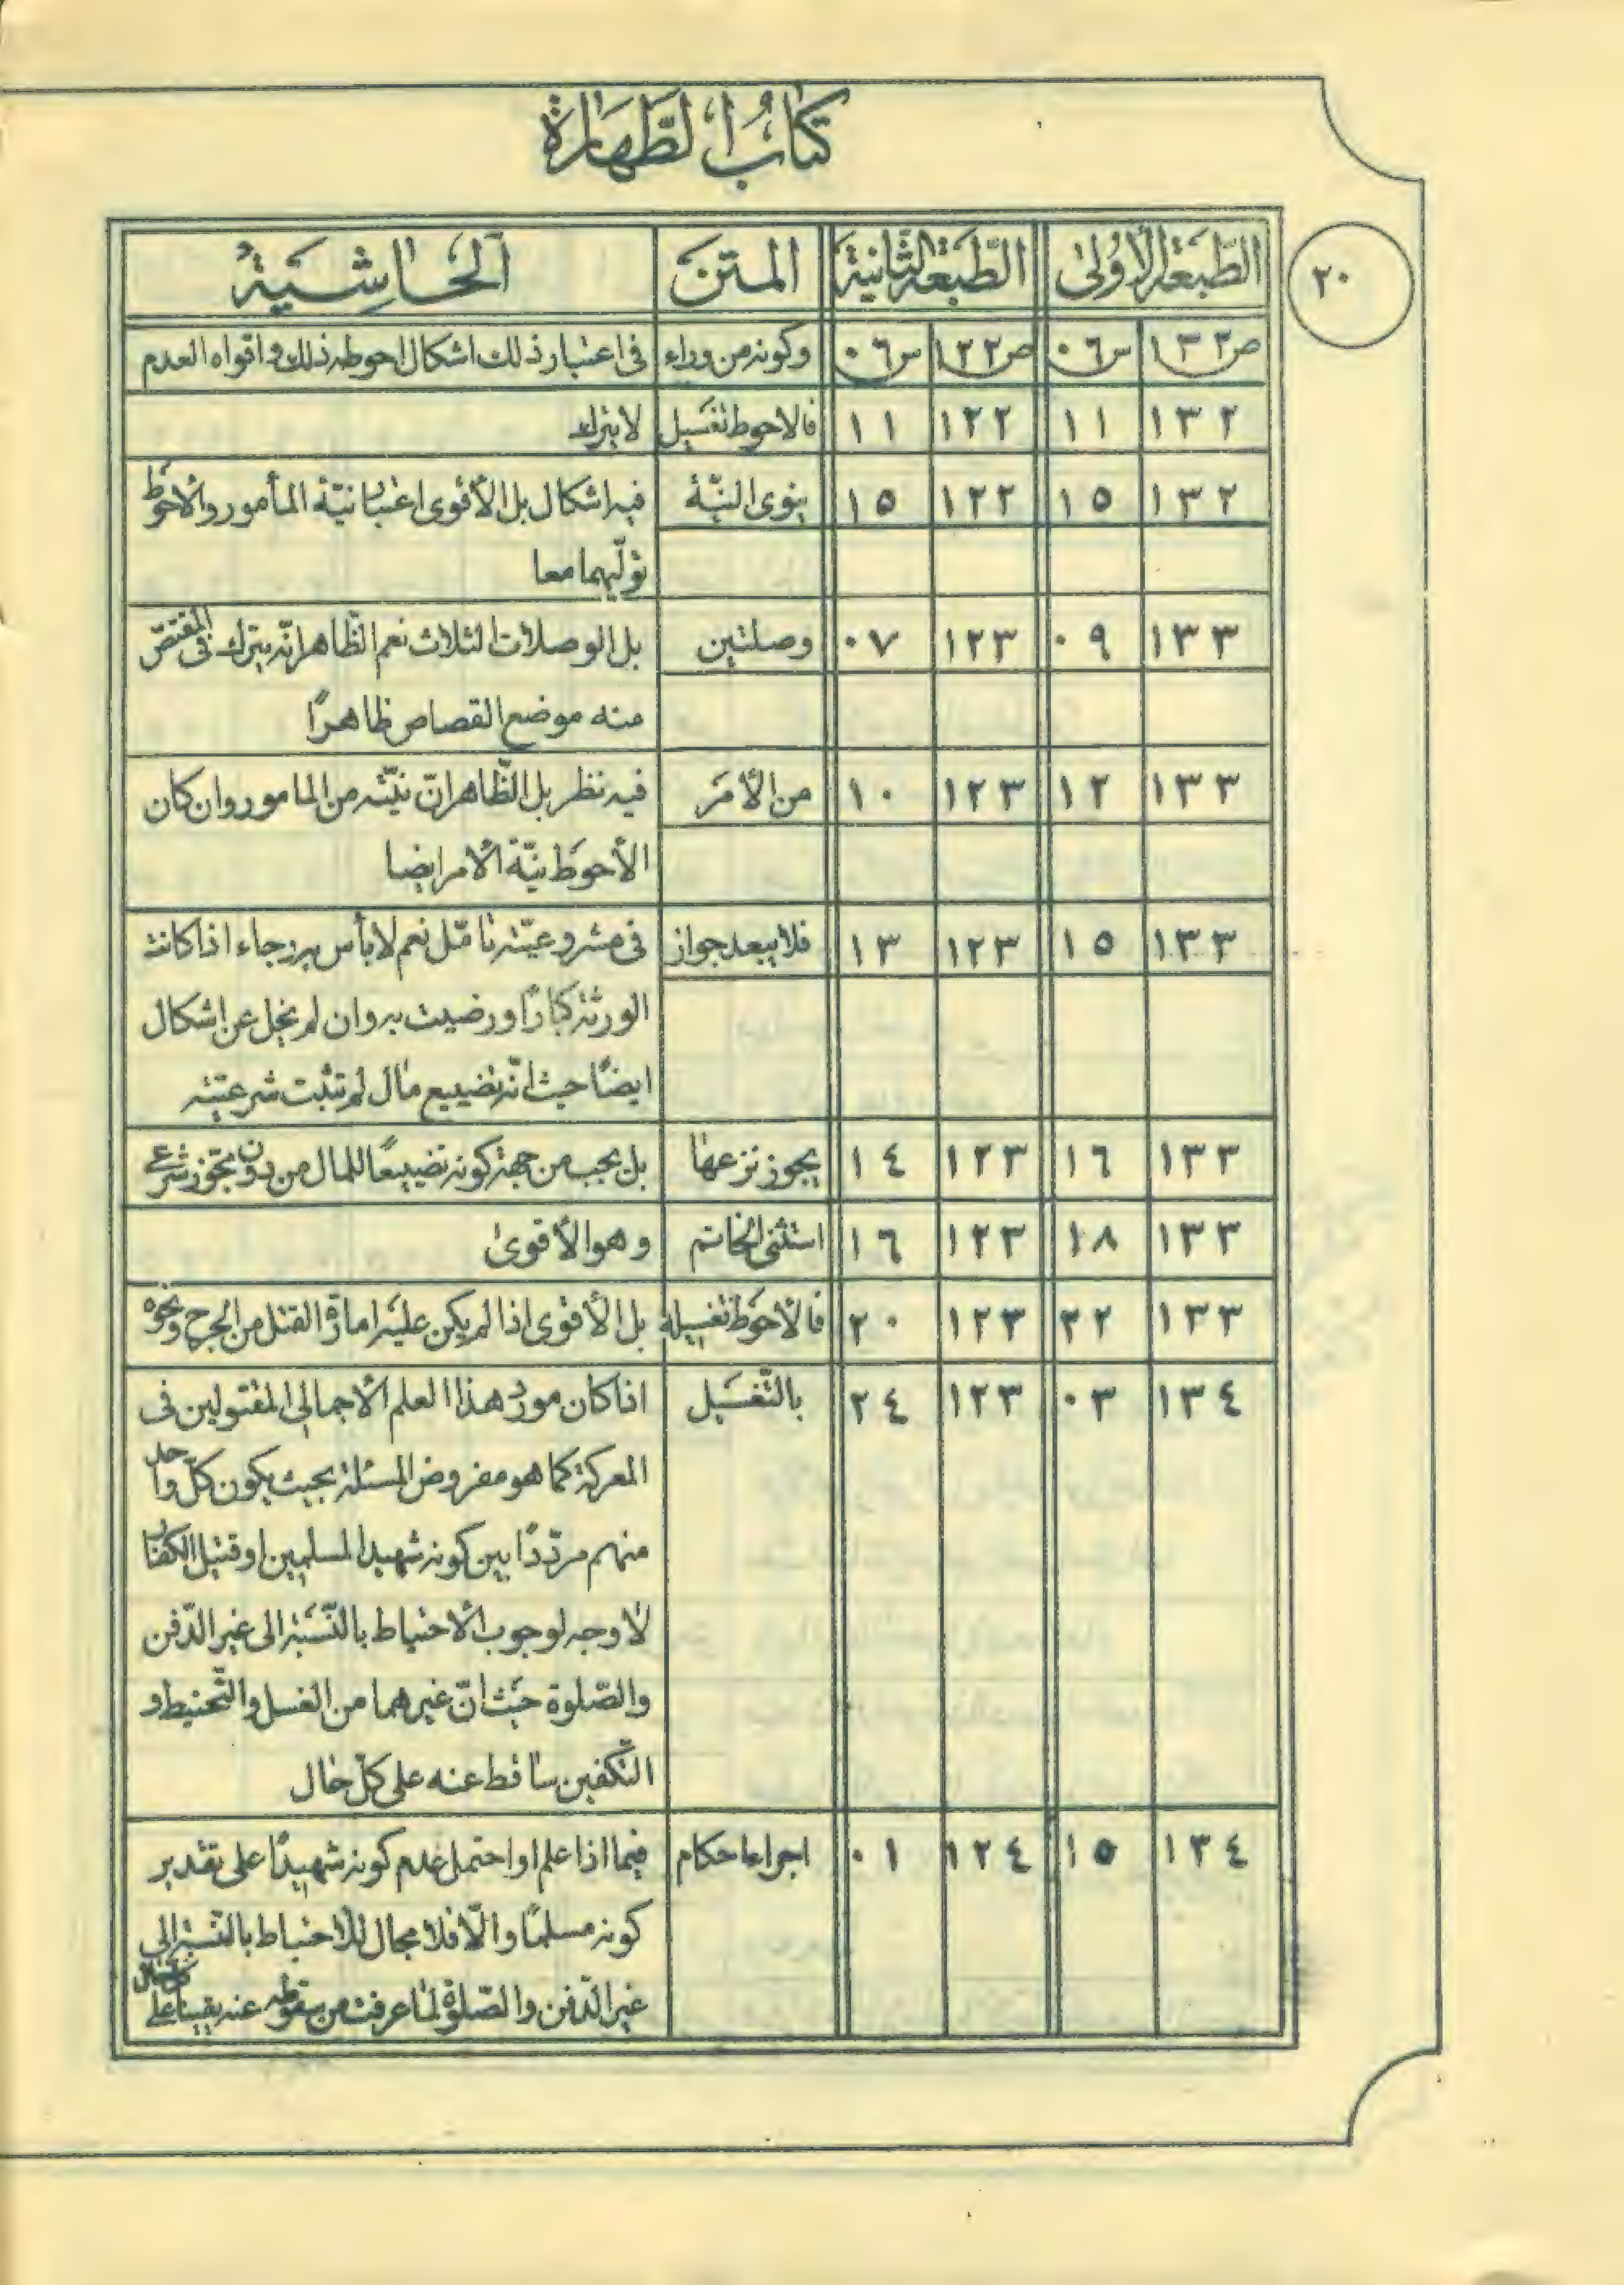 كتاب الطّهارة
٢٠
الطّبعة الأولى الطّبعة الثّانية المتن الحاشية
ص١٣٢ س٠٦ ص١٢٢ س٠٦ وكونه من وراء في اعتبار ذلك اشكال احوطه ذلك واقواه العدم
١٣٢ ١١ ١٢٢ ١١ فالاحوط تغسيل لا يترك
١٣٢ ١٥ ١٢٢ ١٥ ينوى النيّة فيه اشكال بل الأقوى اعتبار نيّة المأمور والاحوط
تولّيهما معا
١٣٣ ٠٩ ١٢٣ ٠٧ وصلتين بل الوصلات الثلاث نعم الظّاهر انّه يترك فى المقتصّ
منه موضع القصاص ظاهرًا
١٣٣ ١٢ ١٢٣ ١٠ من الأمر فيه نظر بل الظّاهر انّ نيّته من المامور وان كان
الأحوط نيّة الامر ايضا
١٣٣ ١٥ ١٢٣ ١٣ فلا يبعد جواز فى مشروعيّته تامّل نعم لا بأس به رجاء اذا كانت
الورثة كبارًا ورضيت به وان لم يخل عن اشكال
ايضًا حيث انّه تضييع مال لم تثبت شرعيّته
١٣٣ ١٦ ١٢٣ ١٤ يجوز نزعها بل يجب من جهة كونه تضييعًا للمال من دون مجوّز شرعي
١٣٣ ١٨ ١٢٣ ١٦ استثنى الخاتم وهو الأقوى
١٣٣ ٢٢ ١٢٣ ٢٠ فالأحوط تغسيله بل الأقوى اذا لم يكن عليه امارة القتل من الجرح ونحوه
١٣٤ ٠٣ ١٢٣ ٢٤ بالتّغسيل اذا كان مورد هذا العلم الاجمالي المقتولين فى
المعركة كما هو مفروض المسئلة بحيث يكون كلّ واحد
منهم مردّدًا بين كونه شهيد المسلمين او قتيل الكفار
لا وجه لوجوب الاحتياط بالنّسبة الى غير الدّفن
والصّلوة حيث انّ غيرهما من الغسل والتّحنيط و
التّكفين ساقط عنه على كلّ حال
١٣٤ ١٥ ١٢٤ ٠١ اجراء احكام فيما اذا علم او احتمل عدم كونه شهيدًا على تقدير
كونه مسلمًا والّا فلا مجال للاحتياط بالنّسبة الى
غير الدّفن والصّلوة لما عرفت من سقوطه عنه يقينا على كلّ حال